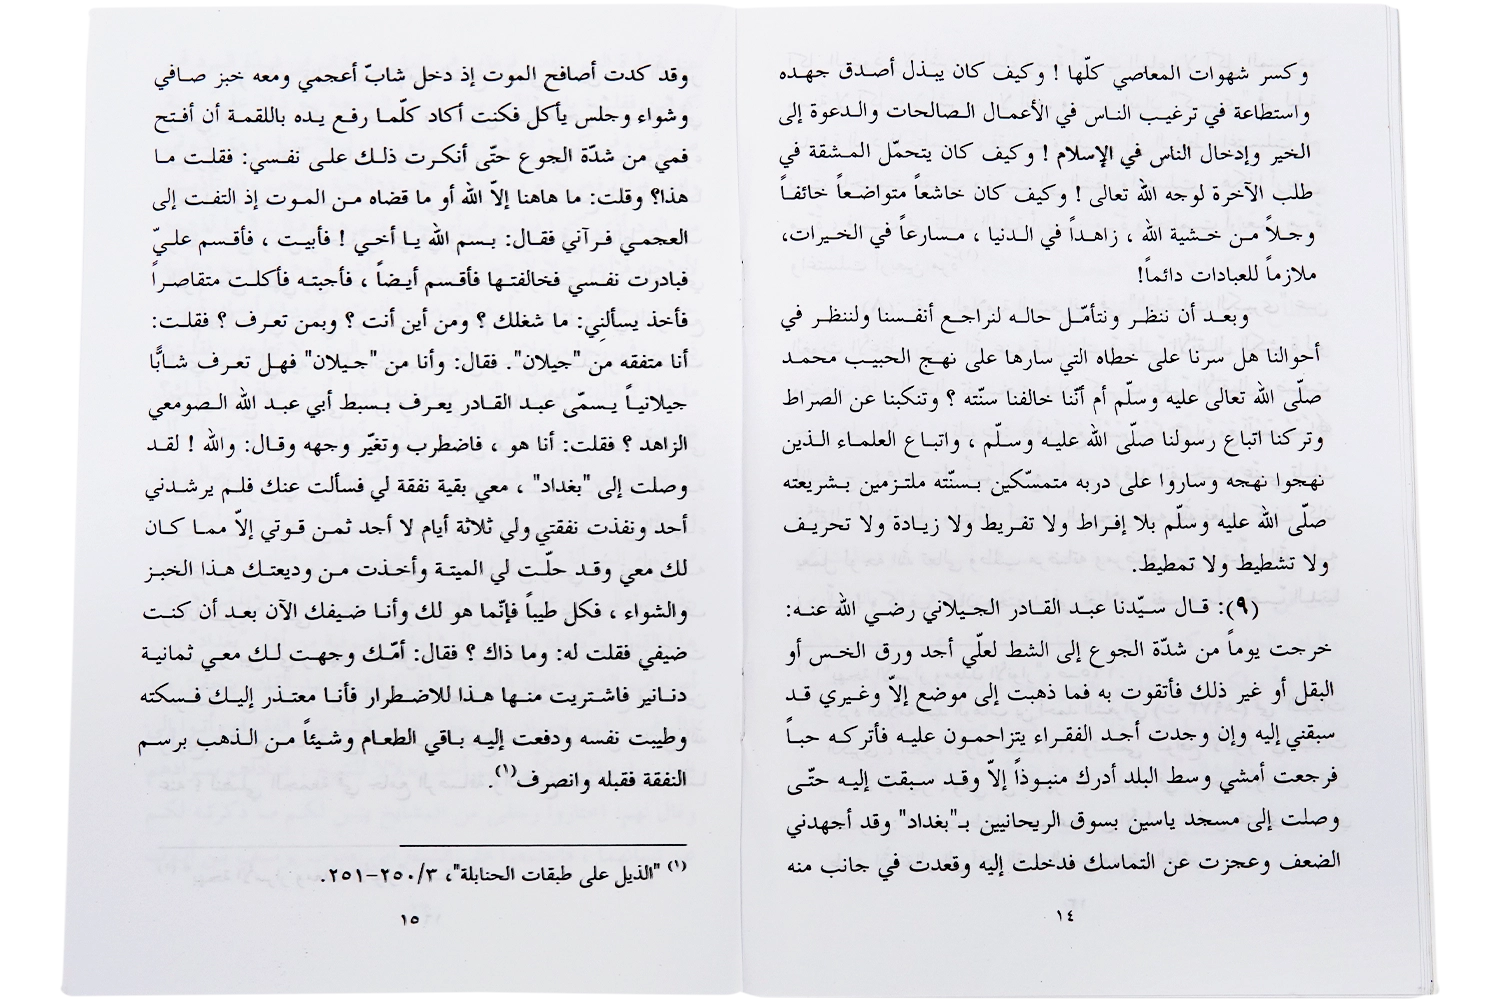 وكسر شهوات المعاصي كلّها ! وكيف كان يبذل أصدق جهده
واستطاعة في ترغيب الناس في الأعمال الصالحات والدعوة إلى
الخير وإدخال الناس في الإسلام ! وكيف كان يتحمّل المشقة في
طلب الآخرة لوجه الله تعالى ! وكيف كان خاشعاً متواضعاً خائفاً
وجلاً من خشية الله ، زاهداً في الدنيا ، مسارعاً في الخيرات،
ملازماً للعبادات دائماً!
وبعد أن ننظر ونتأمّل حاله لنراجع أنفسنا ولننظر في
أحوالنا هل سرنا على خطاه التي سارها على نهج الحبيب محمد
صلّى الله تعالى عليه وسلّم أم أنّنا خالفنا سنّته ؟ وتنكبنا عن الصراط
وتركنا اتباع رسولنا صلّى الله عليه وسلّم ، واتباع العلماء الذين
نهجوا نهجه وساروا على دربه متمسّكين بسنّته ملتزمين بشريعته
صلّى الله عليه وسلّم بلا إفراط ولا تفريط ولا زيادة ولا تحريف
ولا تشطيط ولا تمطيط.
(٩): قال سيّدنا عبد القادر الجيلاني رضي الله عنه:
خرجت يوماً من شدّة الجوع إلى الشط لعلّي أجد ورق الخس أو
البقل أو غير ذلك فأتقوت به فما ذهبت إلى موضع إلاّ وغيري قد
سبقني إليه وإن وجدت أجد الفقراء يتزاحمون عليه فأتركه حباً
فرجعت أمشي وسط البلد أدرك منبوذاً إلاّ وقد سبقت إليه حتّى
وصلت إلى مسجد ياسين بسوق الريحانيين بـ"بغداد" وقد أجهدني
الضعف وعجزت عن التماسك فدخلت إليه وقعدت في جانب منه
١٤
وقد كدت أصافح الموت إذ دخل شابّ أعجمي ومعه خبز صافي
وشواء وجلس يأكل فكنت أكاد كلّما رفع يده باللقمة أن أفتح
فمي من شدّة الجوع حتّى أنكرت ذلك على نفسي: فقلت ما
هذا؟ وقلت: ما هاهنا إلاّ الله أو ما قضاه من الموت إذ التفت إلى
العجمي فرآني فقال: بسم الله يا أخي ! فأبيت ، فأقسم عليّ
فبادرت نفسي فخالفتها فأقسم أيضاً ، فأجبته فأكلت متقاصراً
فأخذ يسألنِي: ما شغلك ؟ ومن أين أنت ؟ وبمن تعرف ؟ فقلت:
أنا متفقه من "جيلان". فقال: وأنا من "جيلان" فهل تعرف شابًّا
جيلانياً يسمّى عبد القادر يعرف بسبط أبي عبد الله الصومعي
الزاهد ؟ فقلت: أنا هو ، فاضطرب وتغيّر وجهه وقال: والله ! لقد
وصلت إلى "بغداد" ، معي بقية نفقة لي فسألت عنك فلم يرشدني
أحد ونفذت نفقتي ولي ثلاثة أيام لا أجد ثمن قوتي إلاّ مما كان
لك معي وقد حلّت لي الميتة وأخذت من وديعتك هذا الخبز
والشواء ، فكل طيباً فإنّما هو لك وأنا ضيفك الآن بعد أن كنت
ضيفي فقلت له: وما ذاك ؟ فقال: أمّك وجهت لك معي ثمانية
دنانير فاشتريت منها هذا للاضطرار فأنا معتذر إليك فسكته
وطيبت نفسه ودفعت إليه باقي الطعام وشيئاً من الذهب برسم
النفقة فقبله وانصرف(١).
(١) "الذيل على طبقات الحنابلة"، ٣/٢٥٠-٢٥١.
١٥